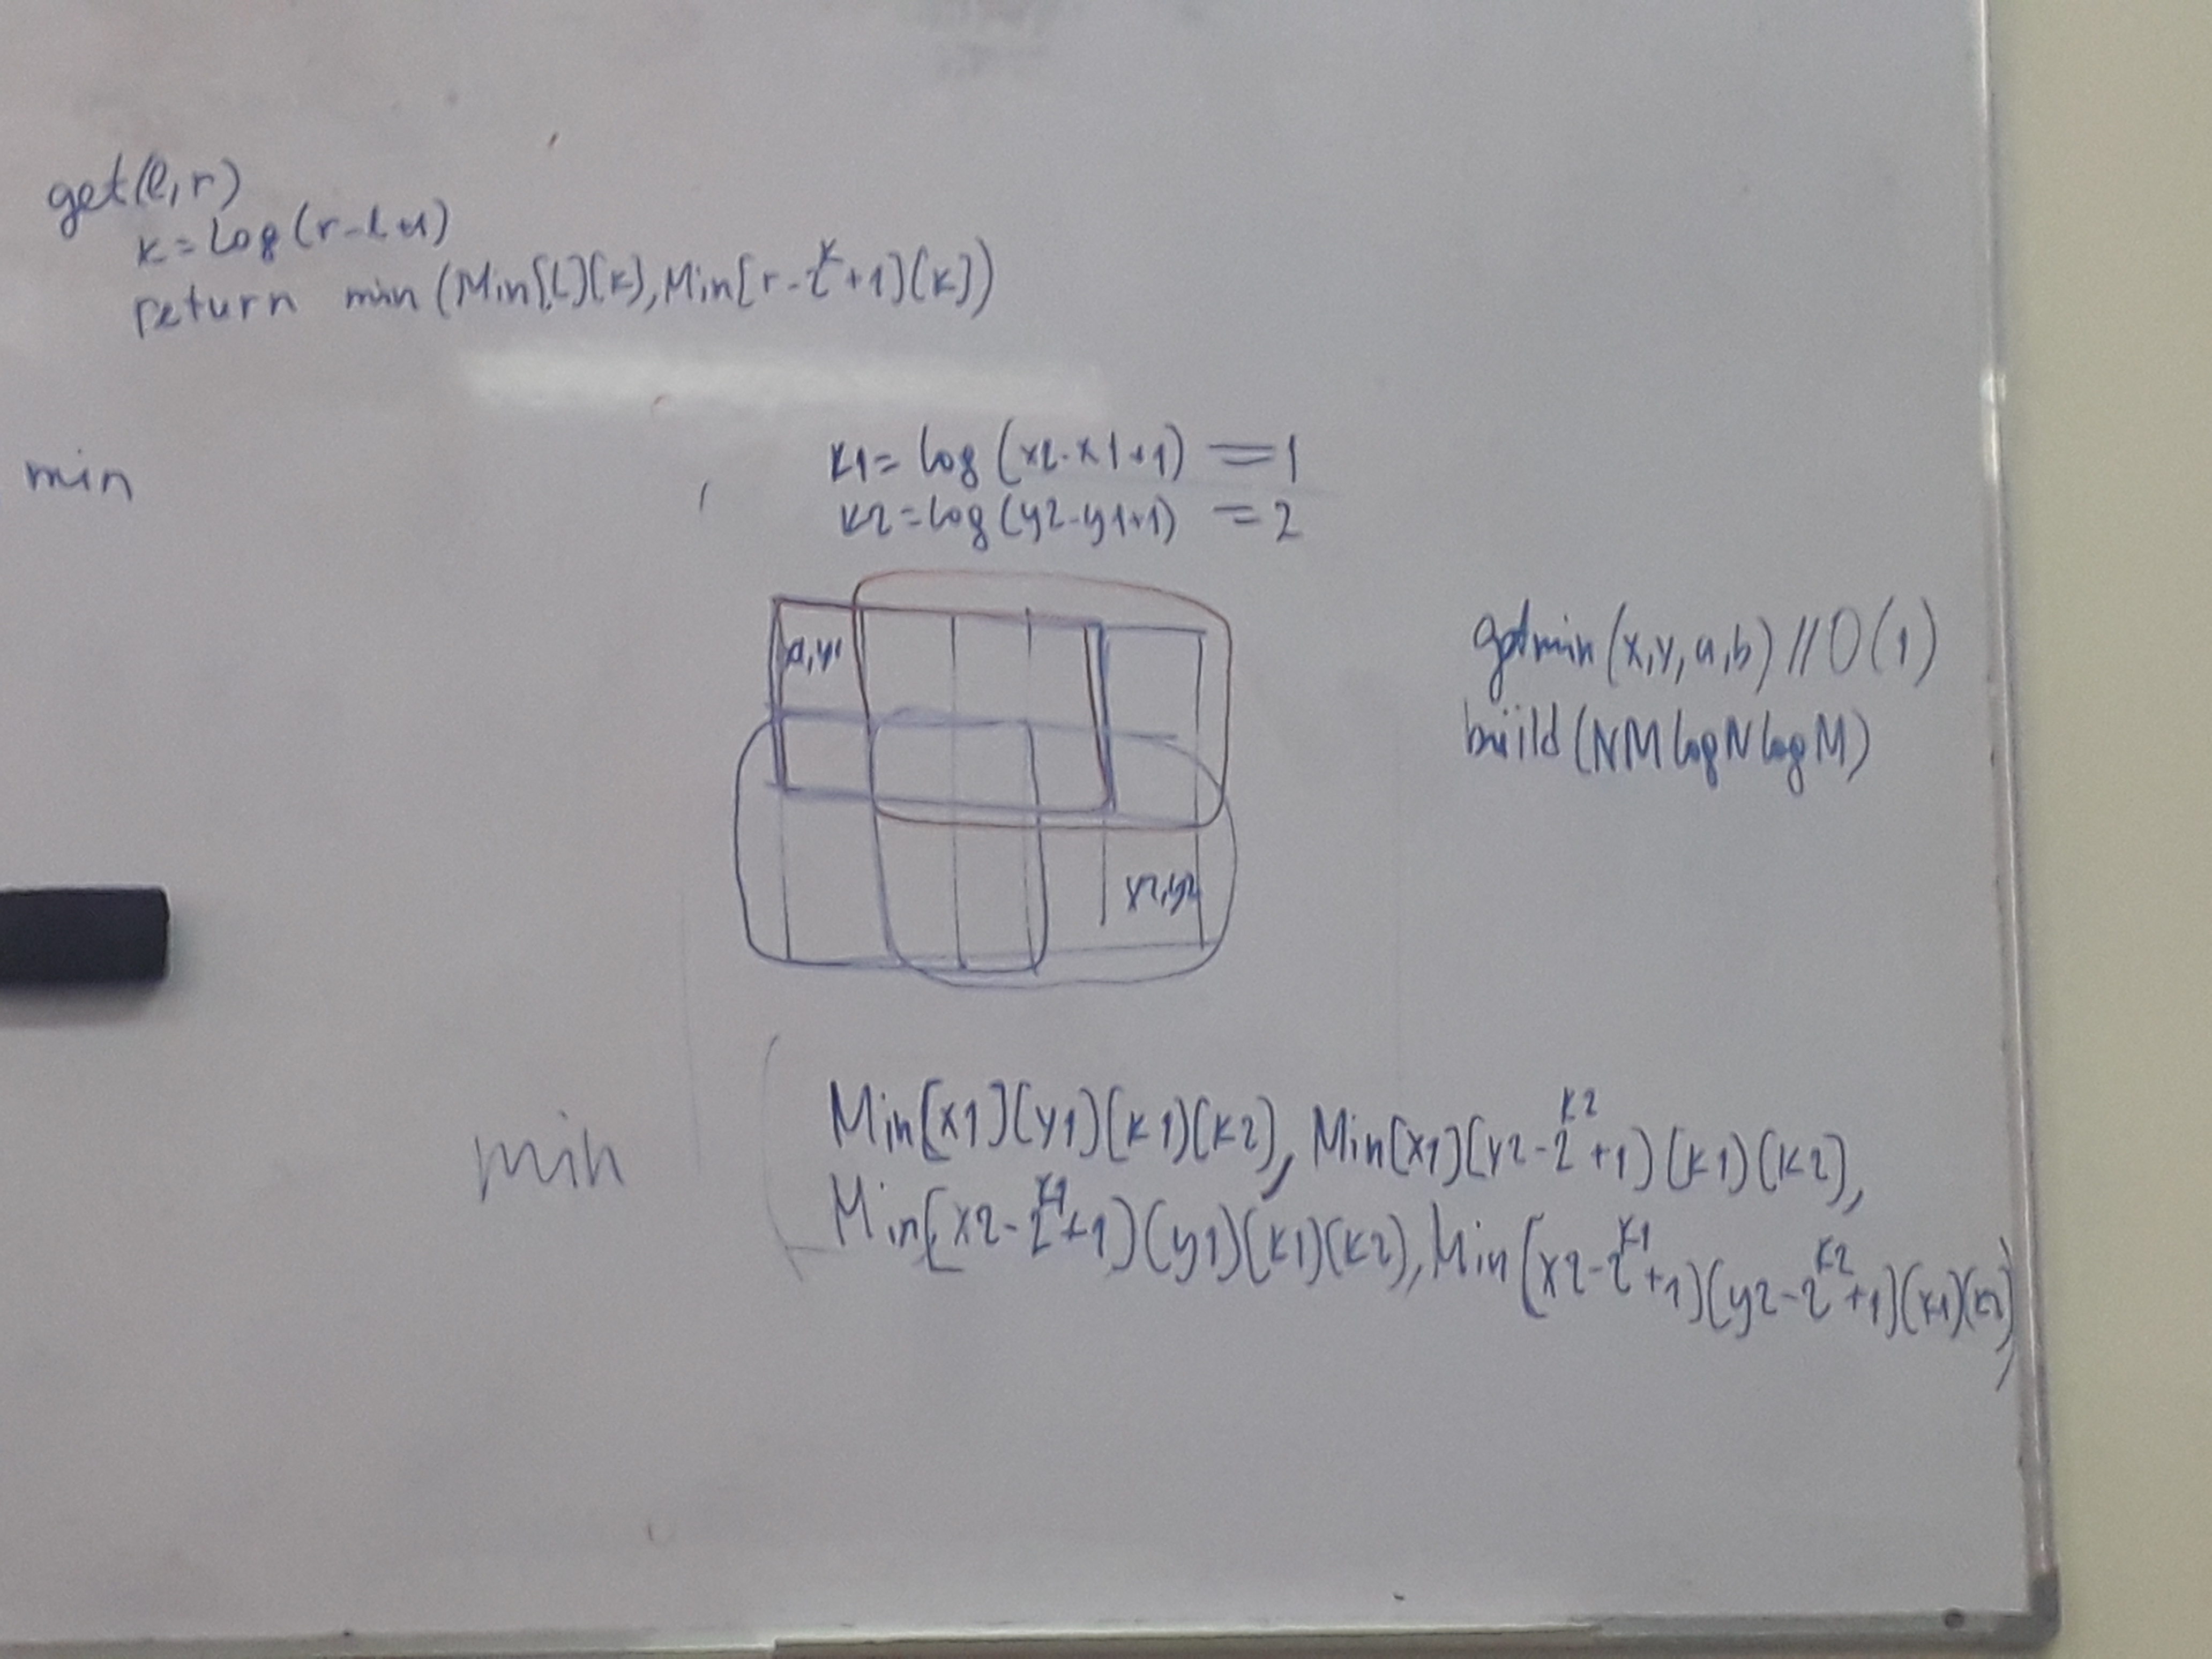 get(l,r)
k=log(r-l+1)
return min(Min[l][k],Min[r-2^k+1][k])
min
k1=log(x2-x1+1) =1
k2=log(y2-y1+1) =2
x1,y1
getmin(x,y,a,b)//O(1)
build(NMlogNlogM)
x2,y2
min
Min[x1][y1][k1][k2], Min[x1][y2-2^k2+1][k1][k2],
Min[x2-2^k1+1][y1][k1][k2], Min[x2-2^k1+1][y2-2^k2+1][k1][k2])